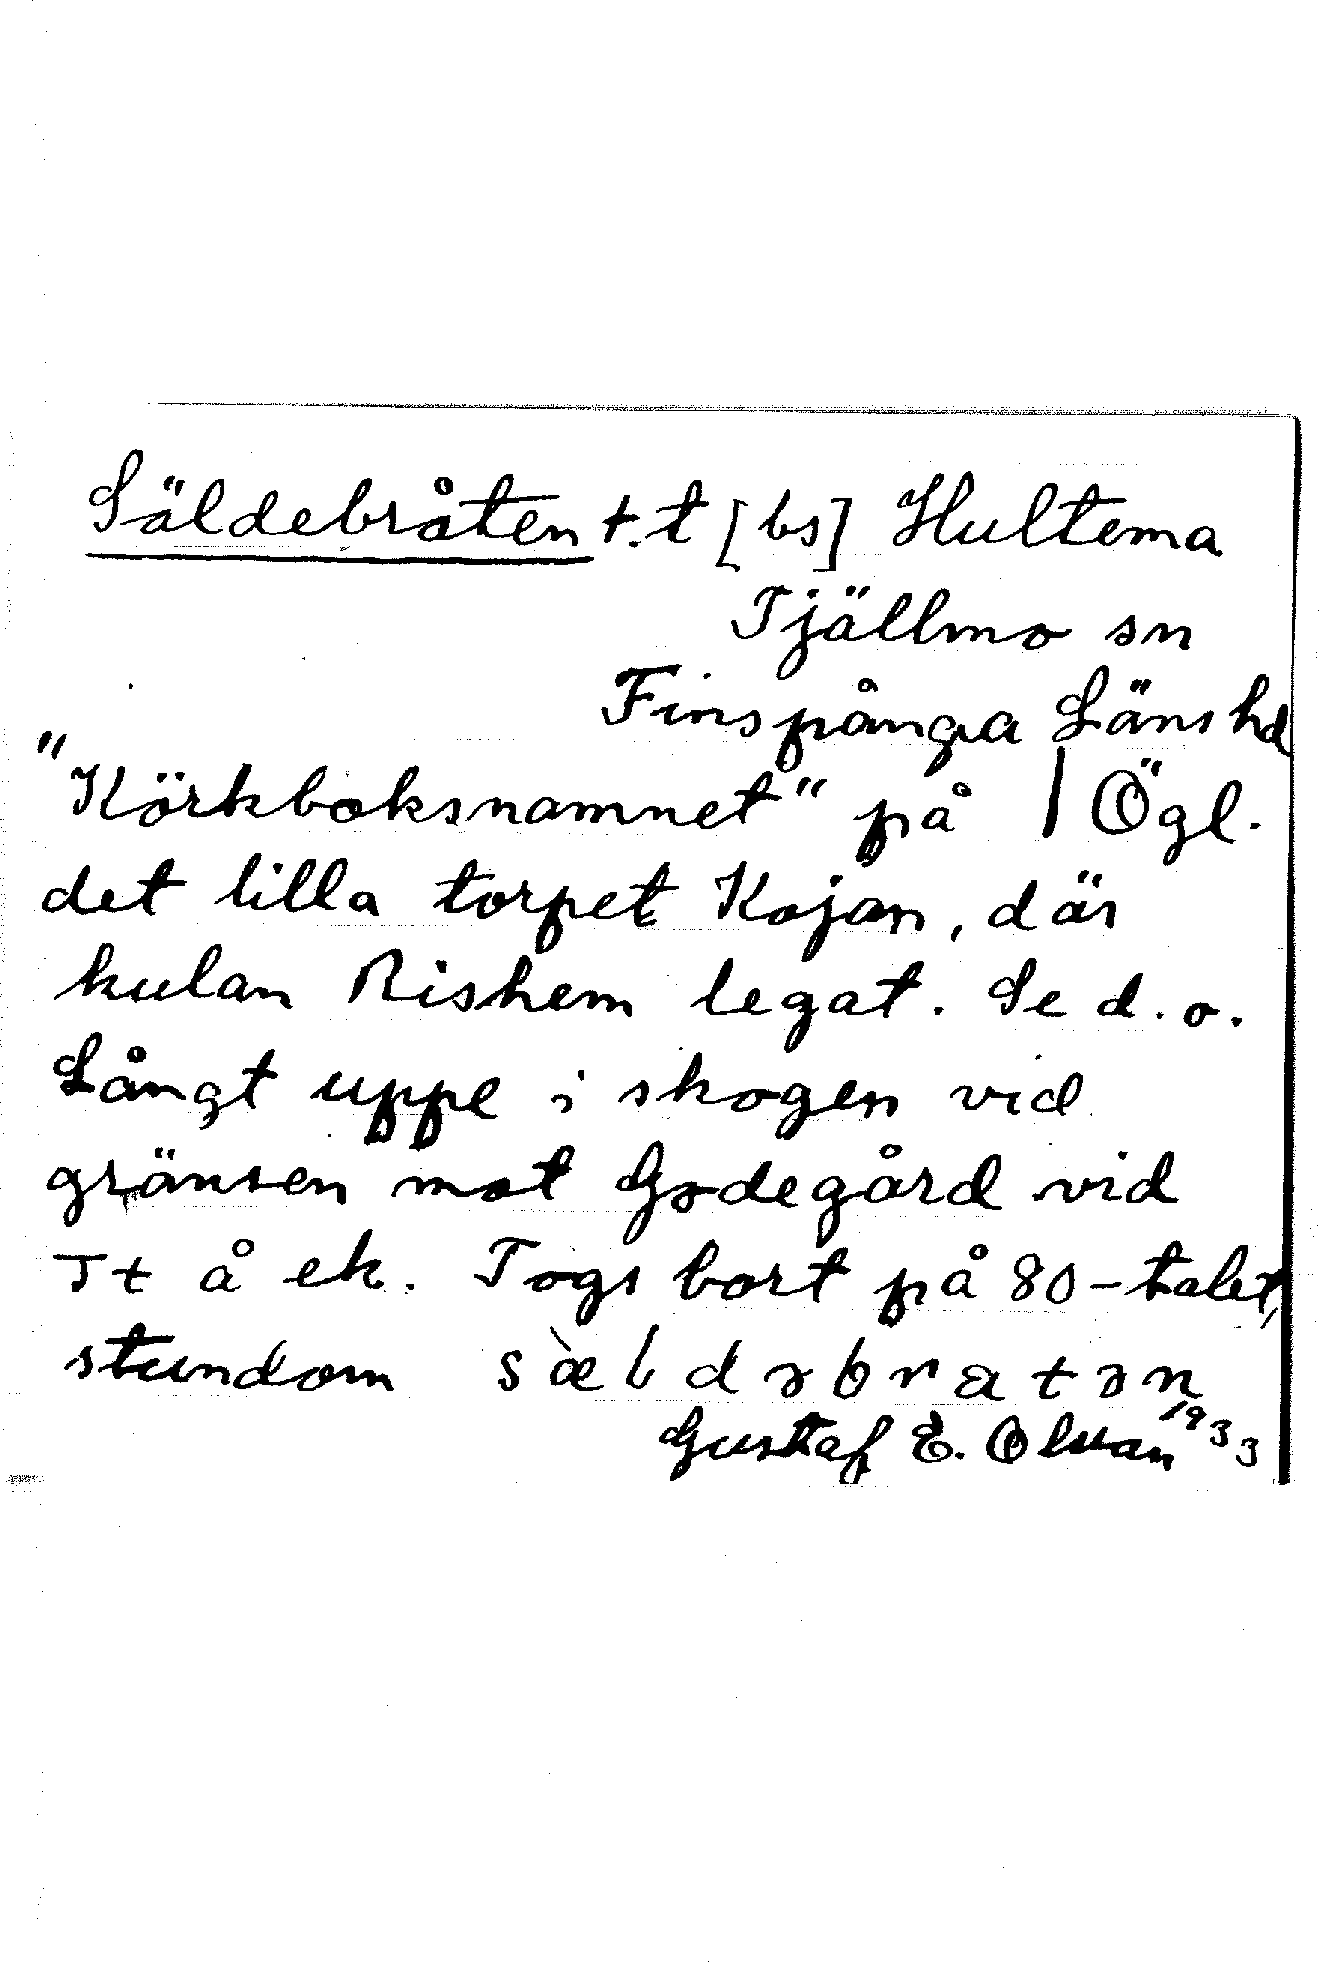 Säldebråten t.t [bs] Hultema
Tjällmo sn
Finspånga Läns hd
"Körkboksnamnet" på | Ögl.
det lilla torpet Kojan, där
kulan Rishem legat. Se d.o.
Långt uppe i skogen vid
gränsen mot Godegård vid
Tt å ek. Togs bort på 80-talet,
stundom
Gustaf E. Olvan 1933